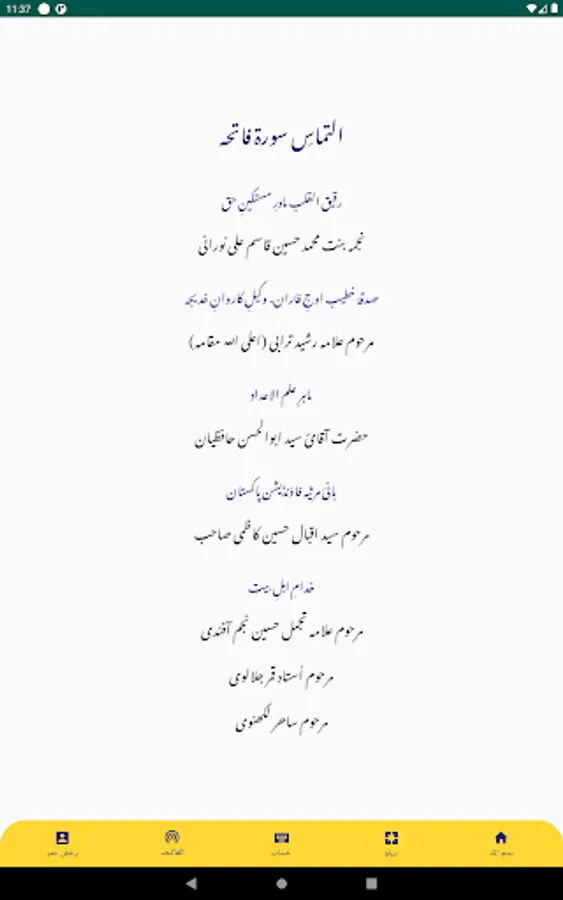 11:37
التماسِ سورۃ فاتحہ
رقیق القلب مادرِ مستکینِ حق
نجمہ بنت محمد حسین قاسم علی نورانی
صدقۂ خطیب اوجِ فاران۔ وکیلِ کاروانِ خدیجہ
مرحوم علامہ رشید ترابی (اعلی اللہ مقامہ)
ماہرِ علم الاعداد
حضرت آقائ سید ابوالحسن حافظیان
بانئ مرثیہ فاؤنڈیشن پاکستان
مرحوم سید اقبال حسین کاظمی صاحب
خدامِ اہلِ بیت
مرحوم علامہ تجمل حسین نجم آفندی
مرحوم اُستاد قمر جلالوی
مرحوم ساحر لکھنوی
بسم اللہ
حساب
الفاتحہ